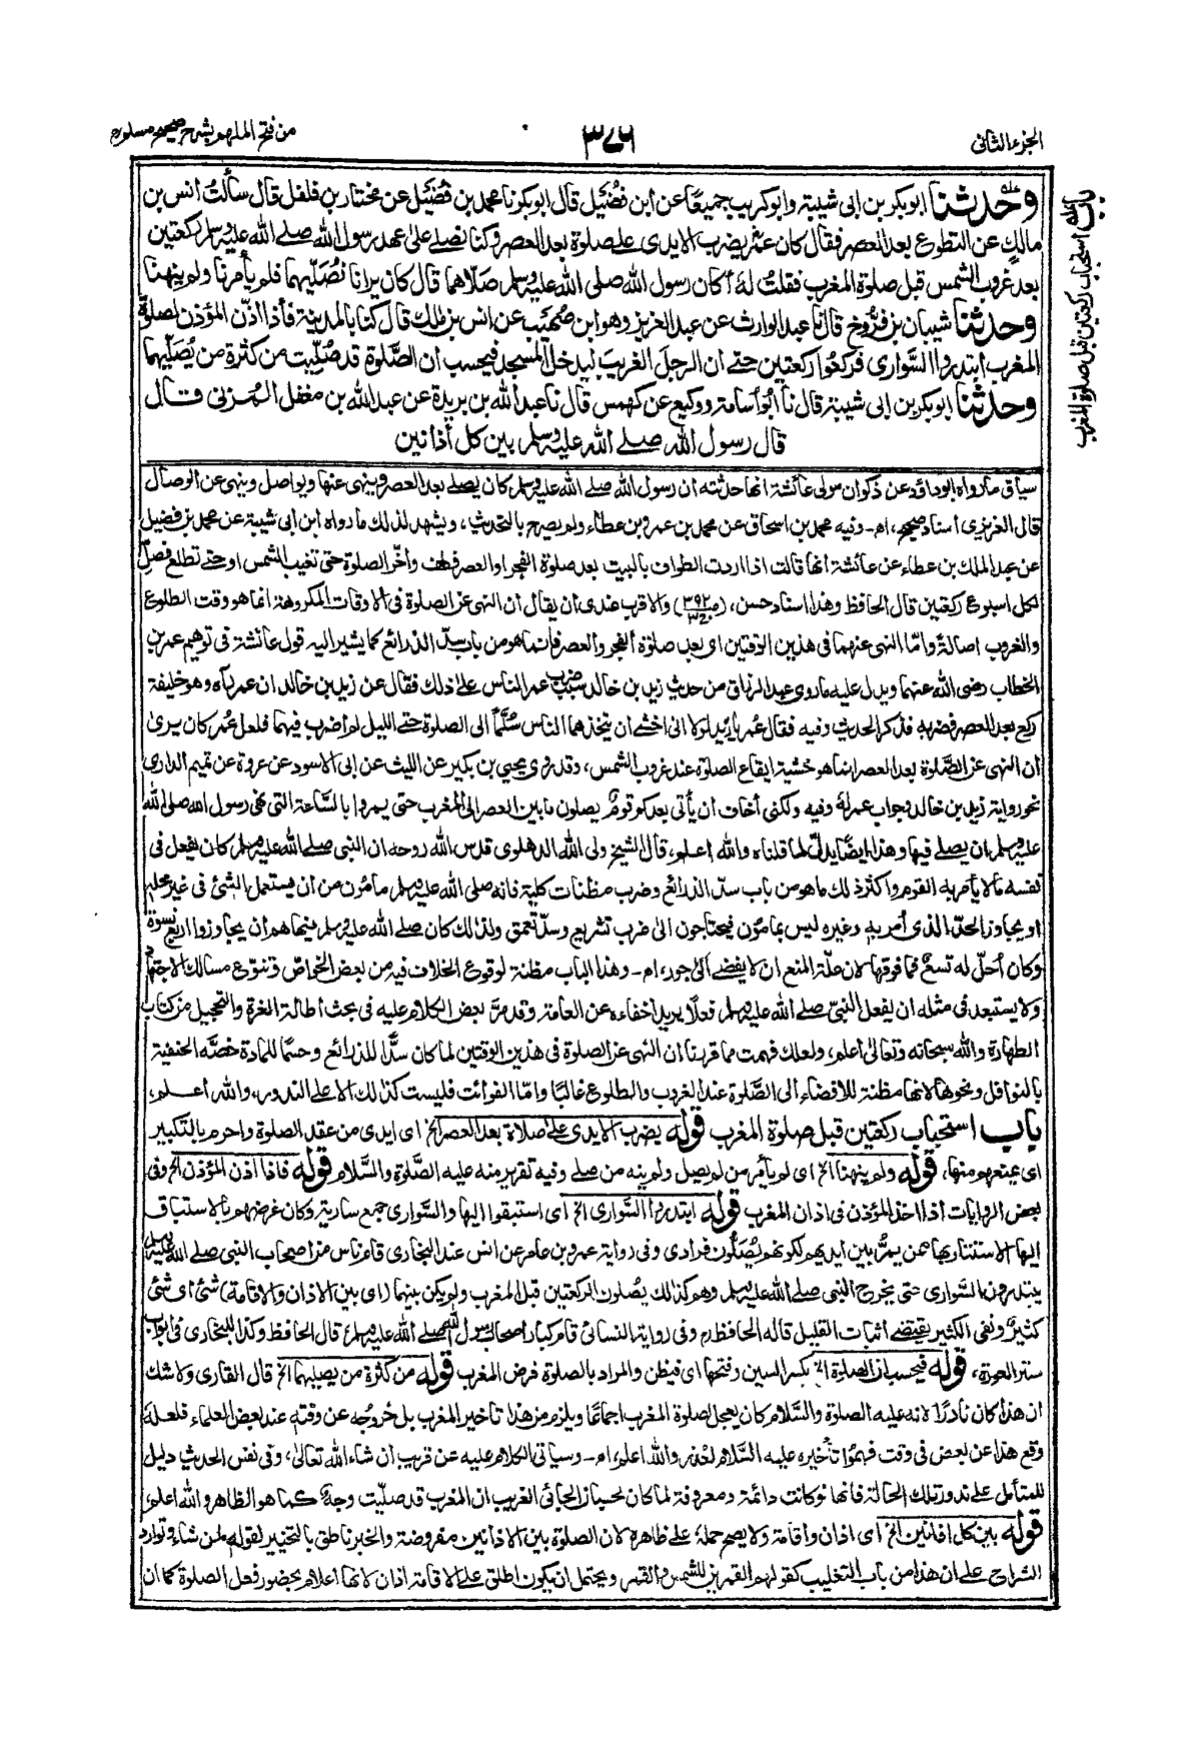 الجزء الثانی
٣٧٦
من فتح الملهم بشرح صحیح مسلم
باب استحباب رکعتین قبل صلوة المغرب
وحدثنا ابوبکر بن ابی شیبة وابوکریب جمیعًا عن ابن فضیل قال ابوبکر نا محمد بن فضیل عن مختار بن فلفل قال سألتُ انس بن
مالكٍ عن التطوع بعد العصر فقال کان عمر یضرب الایدی علی صلوة بعد العصر وکنا نصلے علیٰ عهد رسول الله صلے الله علیه وسلم رکعتین
بعد غروب الشمس قبل صلوة المغرب فقلتُ لهُ أکان رسول الله صلی الله علیه وسلم صلّاهما قال کان یرانا نُصَلّیهما فلم یأمرنا ولم ینهنا
وحدثنا شیبان بن فرُّوخ قال نا عبد الوارث عن عبد العزیز وهو ابن صُهَیب عن انس بن مٰلك قال کنا بالمدینة فاذا اذّن المؤذن لصلوة
المغرب ابتدروا السَّواری فرکعُوا رکعتین حتے ان الرجل الغریبَ لیدخل المسجد فیحسب ان الصَّلوة قد صُلّیت من کثرة من یُصَلّیهما
وحدثنا ابوبکر بن ابی شیبة قال نا أبُو أسامة ووکیع عن کهمس قال نا عبد الله بن بریدة عن عبد الله بن مغفل المُزنی قال
قال رسول الله صلے الله علیه وسلم بین کل أذانین
سیاق ما رواه ابوداؤد عن ذکوان مولی عائشة انها حدثته ان رسول الله صلے الله علیه وسلم کان یصلے بعد العصر وینهی عنها ویواصل وینهی عن الوصال
قال العزیزی اسناد صحیح، اه- وفیه محمد بن اسحاق عن محمد بن عمرو بن عطاء ولم یصرح بالتحدیث، ویشهد لذلك ما رواه ابن ابی شیبة عن محمد بن فضیل
عن عبد الملك بن عطاء عن عائشة انها قالت اذا اردت الطواف بالبیت بعد صلوة الفجر او العصر فطف وأخّر الصلوة حتی تغیب الشمس او حتے تطلع فصلّ
لکل اسبوع رکعتین قال الحافظ وهذا اسناد حسن، والاقرب عندی ان یقال ان النهی عن الصلوة فی الاوقات المکروهة انما هو وقت الطلوع
والغروب اصالةً وامّا النهی عنهما فی هذین الوقتین ای بعد صلوة الفجر والعصر فانما هو من باب سدّ الذرائع کما یشیر الیه قول عائشة فی توهیم عمر بن
الخطاب رضی الله عنهما ویدل علیه ما روی عبد الرزاق من حدیث زید بن خالد سبب ضرب عمر الناس علی ذلك فقال عن زید بن خالد ان عمر رآه وهو خلیفة
رکع بعد العصر فضربه فذکر الحدیث وفیه فقال عمر یا زید لولا انی اخشی ان یتخذهما الناس سُلَّمًا الی الصلوة حتے اللیل لم اضرب فیهما فلعل عُمر کان یریٰ
ان النهی عن الصَّلوة بعد العصر انما هو خشیة ایقاع الصلوة عند غروب الشمس، وقد روی یحیی بن بکیر عن اللیث عن ابی الاسود عن عروة عن تمیم الداری
نحو روایة زید بن خالد وجواب عمر له وفیه ولکنی أخاف ان یأتی بعدکم قومٌ یصلون ما بین العصر الی المغرب حتی یمروا بالسَّاعة التی نهی رسول الله صلی الله
علیه وسلم ان یصلے فیها وهذا ایضًا یدلّ لما قلناه والله اعلم، قال الشیخ ولی الله الدهلوی قدس الله روحه ان النبی صلے الله علیه وسلم کان یفعل فی
نفسه مالا یأمر به القوم واکثر ذلك ما هو من باب سدّ الذرائع وضرب مظنات کلیة فانه صلی الله علیه وسلم مأمون من ان یستعمل الشئ فی غیر محله
او یجاوز الحدّ الذی أمر به وغیره لیس بمامُون فیحتاجون الی ضرب تشریع وسدّ تعمق ولذلك کان صلے الله علیه وسلم ینهاهم أن یجاوزوا اربع نسوة
وکان أحلّ له تسعٌ فما فوقها لان علّة المنع ان لا یفضے الیٰ جور، اه- وهذا الباب مظنة لوقوع الخلاف فیه من بعض الخواص وتنوع مسالك الاجتهاد
ولا یستبعد فی مثله ان یفعل النبیّ صلے الله علیه وسلم فعلًا یرید اخفاءه عن العامة وقد مرّ بعض الکلام علیه فی بحث اطالة الغرة والتحجیل من کتاب
الطهارة والله سبحانه وتعالیٰ اعلم، ولعلك فهمت مما قررنا ان النهی عن الصلوة فی هذین الوقتین لما کان سدًّا للذرائع وحسمًا للمادة خصّه الحنفیة
بالنوافل ونحوها لانها مظنة للافضاء الی الصَّلوة عند الغروب والطلوع غالبًا واما الفوائت فلیست کذلك الا علی الندور، والله أعلم،
باب استحباب رکعتین قبل صلوة المغرب قوله یضرب الایدی علی صلاة بعد العصر الخ ای ایدی من عقد الصلوة واحرم بالتکبیر
ای یمنعهم منها، قوله ولم ینهنا الخ ای لم یأمر من لم یصل ولم ینه من صلے وفیه تقریر منه علیه الصَّلوة والسَّلام قوله فاذا اذن المؤذن الخ وفی
بعض الروایات اذا اخذ المؤذن فی اذان المغرب قوله ابتدروا السَّواری الخ ای استبقوا الیها والسَّواری جمع ساریة وکان غرضهم بالاستباق
الیها الاستتار بها ممن یمرُّ بین ایدیهم لکونهم یُصَلُّون فرادی وفی روایة عمرو بن عامر عن انس عند البخاری قام ناس من اصحاب النبی صلے الله علیه وسلم
یبتدرون السَّواری حتی یخرج النبی صلے الله علیه وسلم وهم کذلك یُصلون الرکعتین قبل المغرب ولم یکن بینهما (ای بین الاذان والاقامة) شئ ای شئ
کثیرٌ ونفی الکثیر یقتضے اثبات القلیل قاله الحافظ رح وفی روایة النسائی قام کبار اصحاب رسول الله صلے الله علیه وسلم قال الحافظ وکذا للبخاری فی ابواب
ستر العورة، قوله فیحسب ان الصلوة الخ بکسر السین وفتحها ای فیظن والمراد بالصلوة فرض المغرب قوله من کثرة من یصلیهما الخ قال القاری ولا شك
ان هذا کان نادرًا لانه علیه الصلوة والسَّلام کان یعجل لصلوة المغرب اجماعًا ویلزم من هذا تأخیر المغرب بل خروجُه عن وقته عند بعض العلماء فلعله
وقع هذا عن بعض فی وقت فهمُوا تأخیره علیه السَّلام لعذر، والله اعلم، اه- وسیاتی الکلام علیه عن قریب ان شاء الله تعالیٰ، وفی نفس الحدیث دلیل
للمتأمل علی ندور تلك الحالة فانها لو کانت دائمة ومعروفة لما کان لحسبان الجائی الغریب ان المغرب قد صلیّت وجهٌ کما هو الظاهر والله اعلم،
قوله بین کل اذانین الخ ای اذان واقامة ولا یصح حملهُ علی ظاهره لان الصلوة بین الاذانین مفروضة والخبر ناطق بالتخییر لقوله لمن شاء وتوارد
الشراح علی ان هذا من باب التغلیب کقولهم القمرین للشمس والقمر ویحتمل ان یکون اطلق علی الاقامة اذان لانها اعلام بحضور فعل الصلوة کما ان